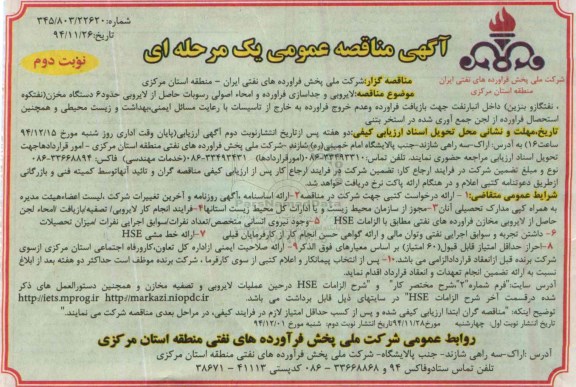 شماره: ۳۴۵/۸۰۳/۲۲۶۲۰
تاریخ: ۹۴/۱۱/۲۶
آگهی مناقصه عمومی یک مرحله ای
نوبت دوم
شرکت ملی پخش فراورده های نفتی ایران
منطقه استان مرکزی
مناقصه گزار: شرکت ملی پخش فراورده های نفتی ایران - منطقه استان مرکزی
موضوع مناقصه: لایروبی و جداسازی فراورده و امحاء اصولی رسوبات حاصل از لایروبی حدود ۶ دستگاه مخزن (نفتکوه
، نفتگازو بنزین) داخل انبارنفت جهت بازیافت فراورده وعدم خروج فراورده به خارج از تاسیسات با رعایت مسائل ایمنی، بهداشت و زیست محیطی و همچنین
استحصال فراورده از لجن جمع آوری شده در استخر بتنی
تاریخ، مهلت و نشانی محل تحویل اسناد ارزیابی کیفی: دو هفته پس ازتاریخ انتشارنوبت دوم آگهی ارزیابی (پایان وقت اداری روز شنبه مورخ ۹۴/۱۲/۱۵
ساعت ۱۶) به آدرس: اراک-سه راهی شازند-جنب پالایشگاه امام خمینی (ره) شازند-شرکت ملی پخش فراورده های نفتی منطقه استان مرکزی - امور قراردادهاجهت
تحویل اسناد ارزیابی مراجعه حضوری نمایند. تلفن تماس: ۳۳۴۹۲۳۱۰-۰۸۶ (امورقراردادها) ۳۳۴۹۲۴۳۱-۰۸۶ (خدمات مهندسی) فاکس: ۳۳۶۶۸۸۹۴-۰۸۶
نوع و مبلغ تضمین شرکت در فرایند ارجاع کار: تضمین شرکت در فرایند ارجاع کار پس از ارزیابی کیفی مناقصه گران و تائید آنهاتوسط کمیته فنی و بازرگانی
ازطریق دعوتنامه کتبی اعلام و در هنگام ارائه پاکت نرخ دریافت خواهد شد.
شرایط عمومی متقاضی: ۱- ارائه درخواست کتبی جهت شرکت در مناقصه ۲- ارائه اساسنامه باآگهی روزنامه و آخرین تغییرات شرکت، لیست اعضاءهیئت مدیره
به همراه کپی مدارک تحصیلی آنان ۳-مجوز از سازمان محیط زیست و یا ادارات کل محیط زیست استانها ۴-فرایند انجام کار لایروبی/ تصفیه/بازیافت/امحاء لجن
حاصل از لایروبی مخازن فراورده های نفتی مطابق با الزامات HSE ۵-وجود نیروی انسانی متخصص/تعداد نفرات/سوابق اجرایی نفرات/میزان تحصیلات
۶- داشتن تجربه و سوابق اجرایی نفتی وتوان مالی و ارائه گواهی حسن انجام کار از کارفرمایان قبلی ۷-ارائه خط مشی HSE
۸-احراز حداقل امتیاز قابل قبول(۶۰ امتیاز) بر اساس معیارهای فوق الذکر ۹- ارائه صلاحیت ایمنی ازاداره کل تعاون، کارورفاه اجتماعی استان مرکزی ازسوی
شرکت برنده قبل ازانعقاد قراردادالزامی می باشد. ۱۰-پس از انتخاب پیمانکار و اعلام کتبی از سوی کارفرما ، شرکت برنده موظف است حداکثر دو هفته بعد از ابلاغ
نسبت به ارائه تضمین انجام تعهدات و انعقاد قرارداد اقدام نماید.
آدرس سایت: "فرم شماره "۲"شرح مختصر کار" و "شرح الزامات HSE درحین عملیات لایروبی و تصفیه مخازن و همچنین دستورالعمل های ذکر
شده درقسمت آخر شرح الزامات HSE" در سایتهای ذیل قابل برداشت می باشد. http://markazi.niopdc.ir http://iets.mporg.ir
توضیح اینکه: "مناقصه گران ابتدا ارزیابی کیفی شده و پس از کسب حداقل امتیاز لازم در فرایند کیفی، در مراحل بعدی مناقصه شرکت می نمایند."
تاریخ انتشار نوبت اول: چهارشنبه مورخ ۹۴/۱۱/۲۸ تاریخ انتشار نوبت دوم: شنبه مورخ ۹۴/۱۲/۰۱
روابط عمومی شرکت ملی پخش فرآورده های نفتی منطقه استان مرکزی
آدرس: اراک-سه راهی شازند- جنب پالایشگاه- شرکت ملی پخش فرآورده های نفتی منطقه استان مرکزی
تلفن تماس ستادوفاکس ۹۴ و ۳۳۶۶۸۸۶۸ - ۰۸۶ کدپستی ۴۱۱۱۳ - ۳۸۶۷۱